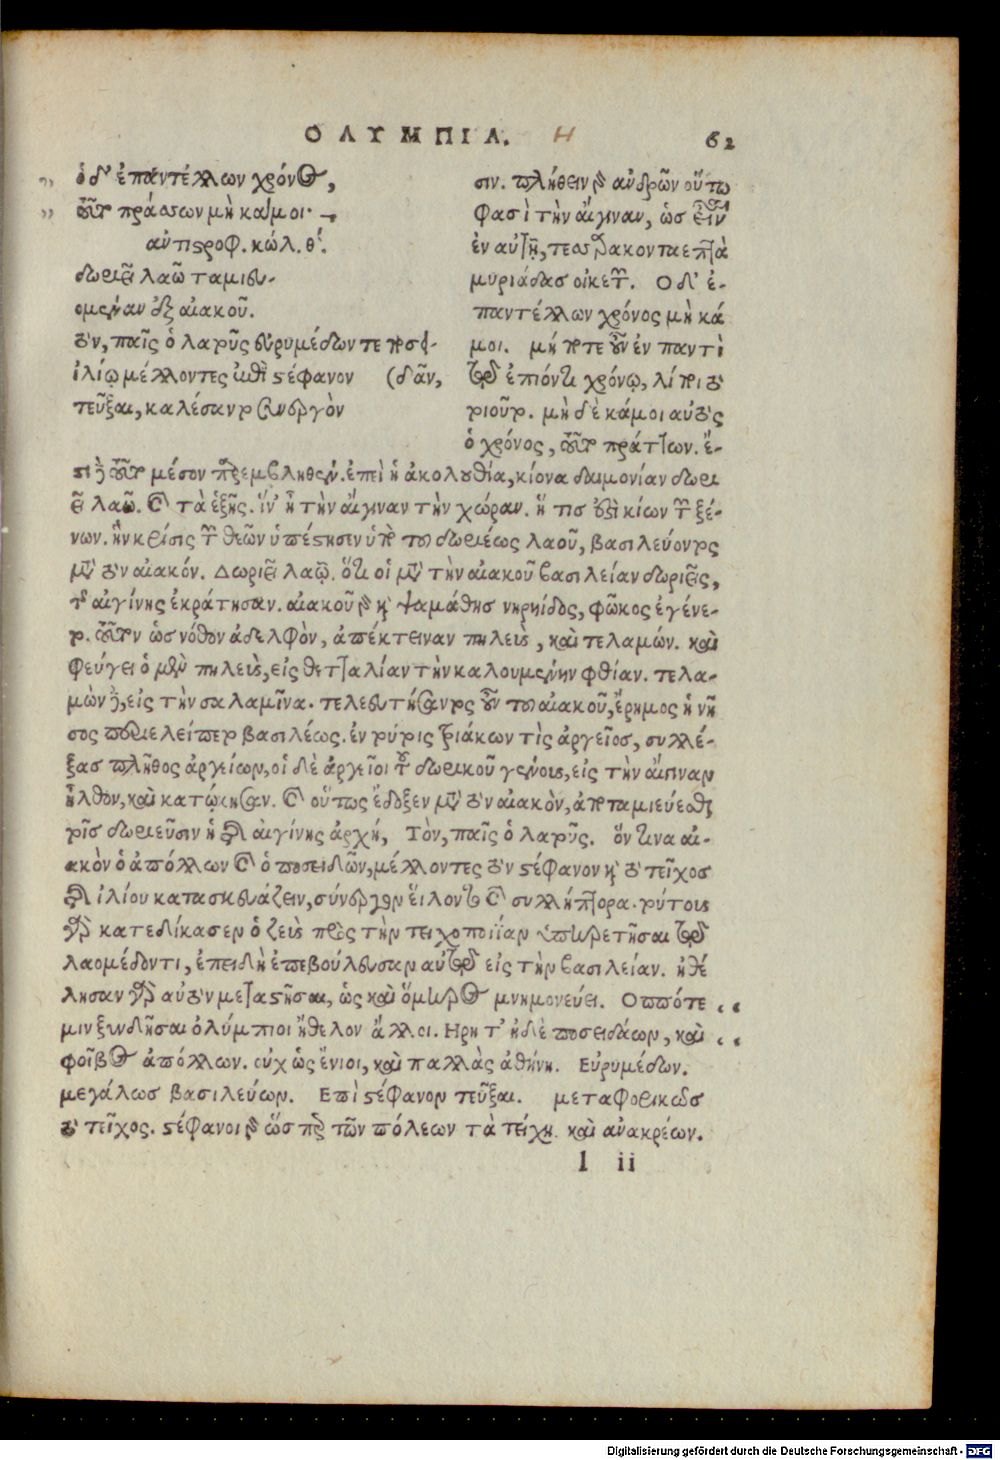 ΟΛΥΜΠΙΑ. Η 62
ὁ δ' ἐπαντέλλων χρόνος,
τοῦτο πράσσων μὴ κάμοι·
αντιστροφ. κώλ. θ'.
δωριεῖ λαῷ ταμιευ-
ομέναν ἐξ αἰακοῦ.
τὸν, παῖς ὁ λατοῦς εὐρυμέδων τε ποσει-
(δᾶν,
ἰλίῳ μέλλοντες ἐπὶ στέφανον
τεῦξαι, καλέσαντο συνεργὸν
σιν. πλήθειν γὰρ ανδρῶν οὕτω
φασὶ τὴν αἴγιναν, ὡς εἶναι
ἐν αὐτῇ, τεσσαρακονταεπτὰ
μυριάδας οἰκετῶν. Ο δ' ἐ-
παντέλλων χρόνος μὴ κά
μοι. μήποτε οὖν ἐν παντὶ
τῷ ἐπιόντι χρόνῳ, λίποι τὸ
τοιοῦτον. μὴ δὲ κάμοι αὐτὸς
ὁ χρόνος, τοῦτο πράττων. ἔ-
στι δὲ τοῦτο μέσον παρεμβληθέν. ἐπεὶ ἡ ἀκολουθία, κίονα δαιμονίαν δωρι
εῖ λαῷ. καὶ τὰ ἑξῆς. ἵν' ᾖ τὴν αἴγιναν τὴν χώραν. ἥ τις ἐστὶ κίων τῶν ξέ-
νων. ἣν κρίσις τῶν θεῶν ὑπέστησεν ὑπὸ τοῦ δωριέως λαοῦ, βασιλεύοντος
μετὰ τὸν αἰακόν. Δωριεῖ λαῷ. ὅτι οἱ μετὰ τὴν αἰακοῦ βασιλείαν δωριεῖς,
τῆς αἰγίνης ἐκράτησαν. αἰακοῦ γὰρ καὶ ψαμάθης νηρηίδος, φῶκος ἐγένε-
το. τοῦτον ὡς νόθον ἀδελφὸν, ἀπέκτειναν πηλεὺς, καὶ τελαμών. καὶ
φεύγει ὁ μὲν πηλεὺς, εἰς θετταλίαν τὴν καλουμένην φθίαν. τελα-
μὼν δὲ, εἰς τὴν σαλαμῖνα. τελευτήσαντος οὖν τοῦ αἰακοῦ, ἔρημος ἡ νῆ
σος περιελείπετο βασιλέως. ἐν τούτοις τριάκων τὶς ἀργεῖος, συλλέ-
ξας πλῆθος ἀργείων, οἱ δὲ ἀργεῖοι τοῦ δωρικοῦ γένους, εἰς τὴν αἴγιναν
ἦλθον, καὶ κατῴκησαν. καὶ οὕτως ἔδοξεν μετὰ τὸν αἰακὸν, ἀποταμιεύεσθαι
τοῖς δωριεῦσιν ἡ τῆς αἰγίνης ἀρχή, Τὸν, παῖς ὁ λατοῦς. ὅν τινα αἰ-
ακὸν ὁ ἀπόλλων καὶ ὁ ποσειδῶν, μέλλοντες τὸν στέφανον καὶ τὸ τεῖχος
τῆς ἰλίου κατασκευάζειν, σύνεργον εἵλοντο καὶ συλλήπτορα. τούτοις
γὰρ κατεδίκασεν ὁ ζεὺς πρὸς τὴν τειχοποιΐαν ὑπηρετῆσαι τῷ
λαομέδοντι, ἐπειδὴ ἐπεβούλευσαν αὐτῷ εἰς τὴν βασιλείαν. ἠθέ
λησαν γὰρ αὐτὸν μεταστῆσαι, ὡς καὶ ὅμηρος μνημονεύει. Οππότε
μιν ξυνδῆσαι ὀλύμπιοι ἤθελον ἄλλοι. Ηρη τ' ἠδὲ ποσειδάων, καὶ
φοῖβος ἀπόλλων. οὐχ ὡς ἔνιοι, καὶ παλλὰς ἀθήνη. Εὐρυμέδων.
μεγάλως βασιλεύων. Επὶ στέφανον τεῦξαι. μεταφορικῶς
τὸ τεῖχος. στέφανοι γὰρ ὥσπερ τῶν πόλεων τὰ τείχη. καὶ ανακρέων.
l ii
Digitalisierung gefördert durch die Deutsche Forschungsgemeinschaft - DFG